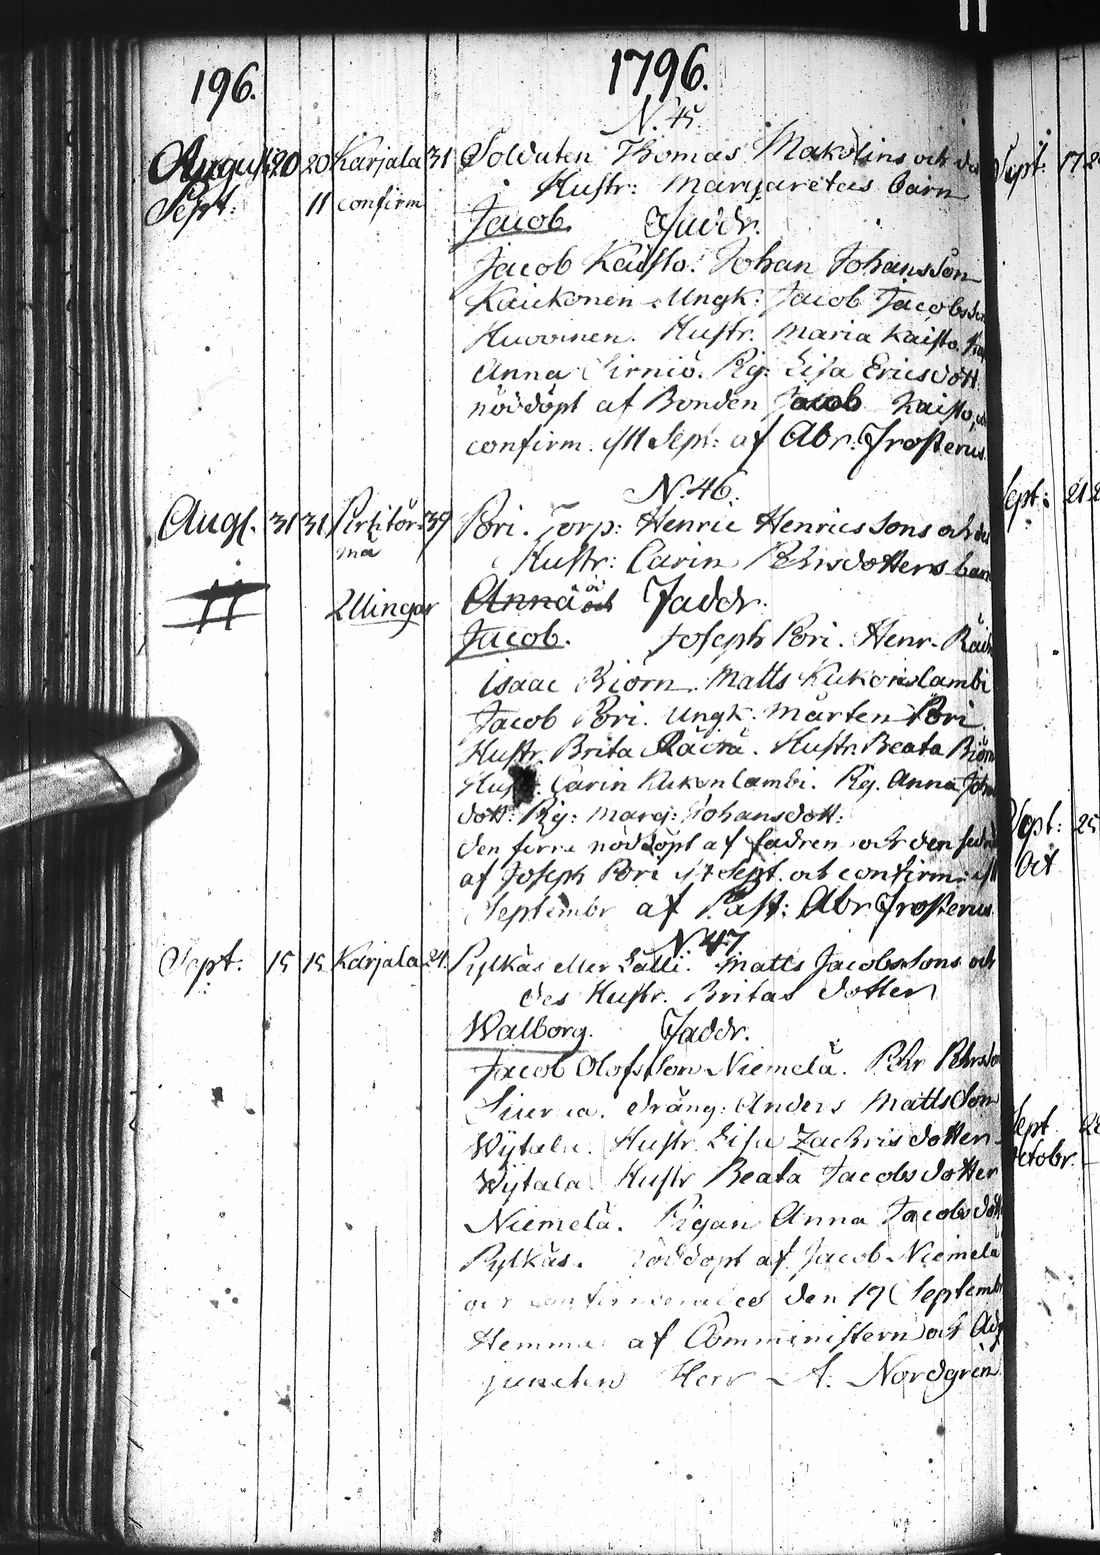 196. 1796.
N. 45
August 20 20 Karjala 31 Soldaten Thomas Makolins och
Sept: 11 confirm Hustr: Margaretas barn
Jacob. Faddr.
Jacob Kaisto. Johan Johansson
Kaickonen. Ungk: Jacob Jacobsson
Huovinen. Hustr. Maria Kaisto.
Anna Sirniö. Pig: Lisa Ericsdott
nöddöpt af Bonden Jacob Kaisto,
confirm. 11 Sept: af Abr: Frosterus.
N. 46.
Aug. 31 31 Portitör- 39 Pori. Torp: Henric Henricssons och
ma Hustr: Carin Pehrsdotters barn
Tllingar Anna och Faddr.
Jacob. Joseph Pori. Henr. Räi
Isaac Biörn. Matts Kukonlambi
Jacob Pori. Ungk. Mårten Pori.
Hustr. Brita Räinä. Hustr. Beata Biörn
Hustr. Carin Kukonlambi. Pig. Anna Joh
dott: Pig: Marg: Johansdott:
den förra nöddöpt af fadren och den
af Joseph Pori 17 Sept. och confirm:
Septembr af Past: Abr. Frosterus.
N. 47.
Sept. 15 15 Karjala 24. Pylkäs eller Lälli. Matts Jacobssons och
des Hustr. Britas dotter
Walborg. Faddr.
Jacob Olofsson Niemelä. Pehr Pehrsso
dräng: Anders Mattsson
Wijtala. Hustr. Lisa Zachrisdotter
Wijtala. Hustr Beata Jacobsdotter
Niemelä. Pigan Anna Jacobsdott
Pylkäs. nöddöpt af Jacob Niemelä
den 19 Septemb
Hemma af Comministern och Adj
juncten Herr A. Nordgren
Sept: 17
Sept: 21
Sept: 25
Oct
Sept
Octobr.